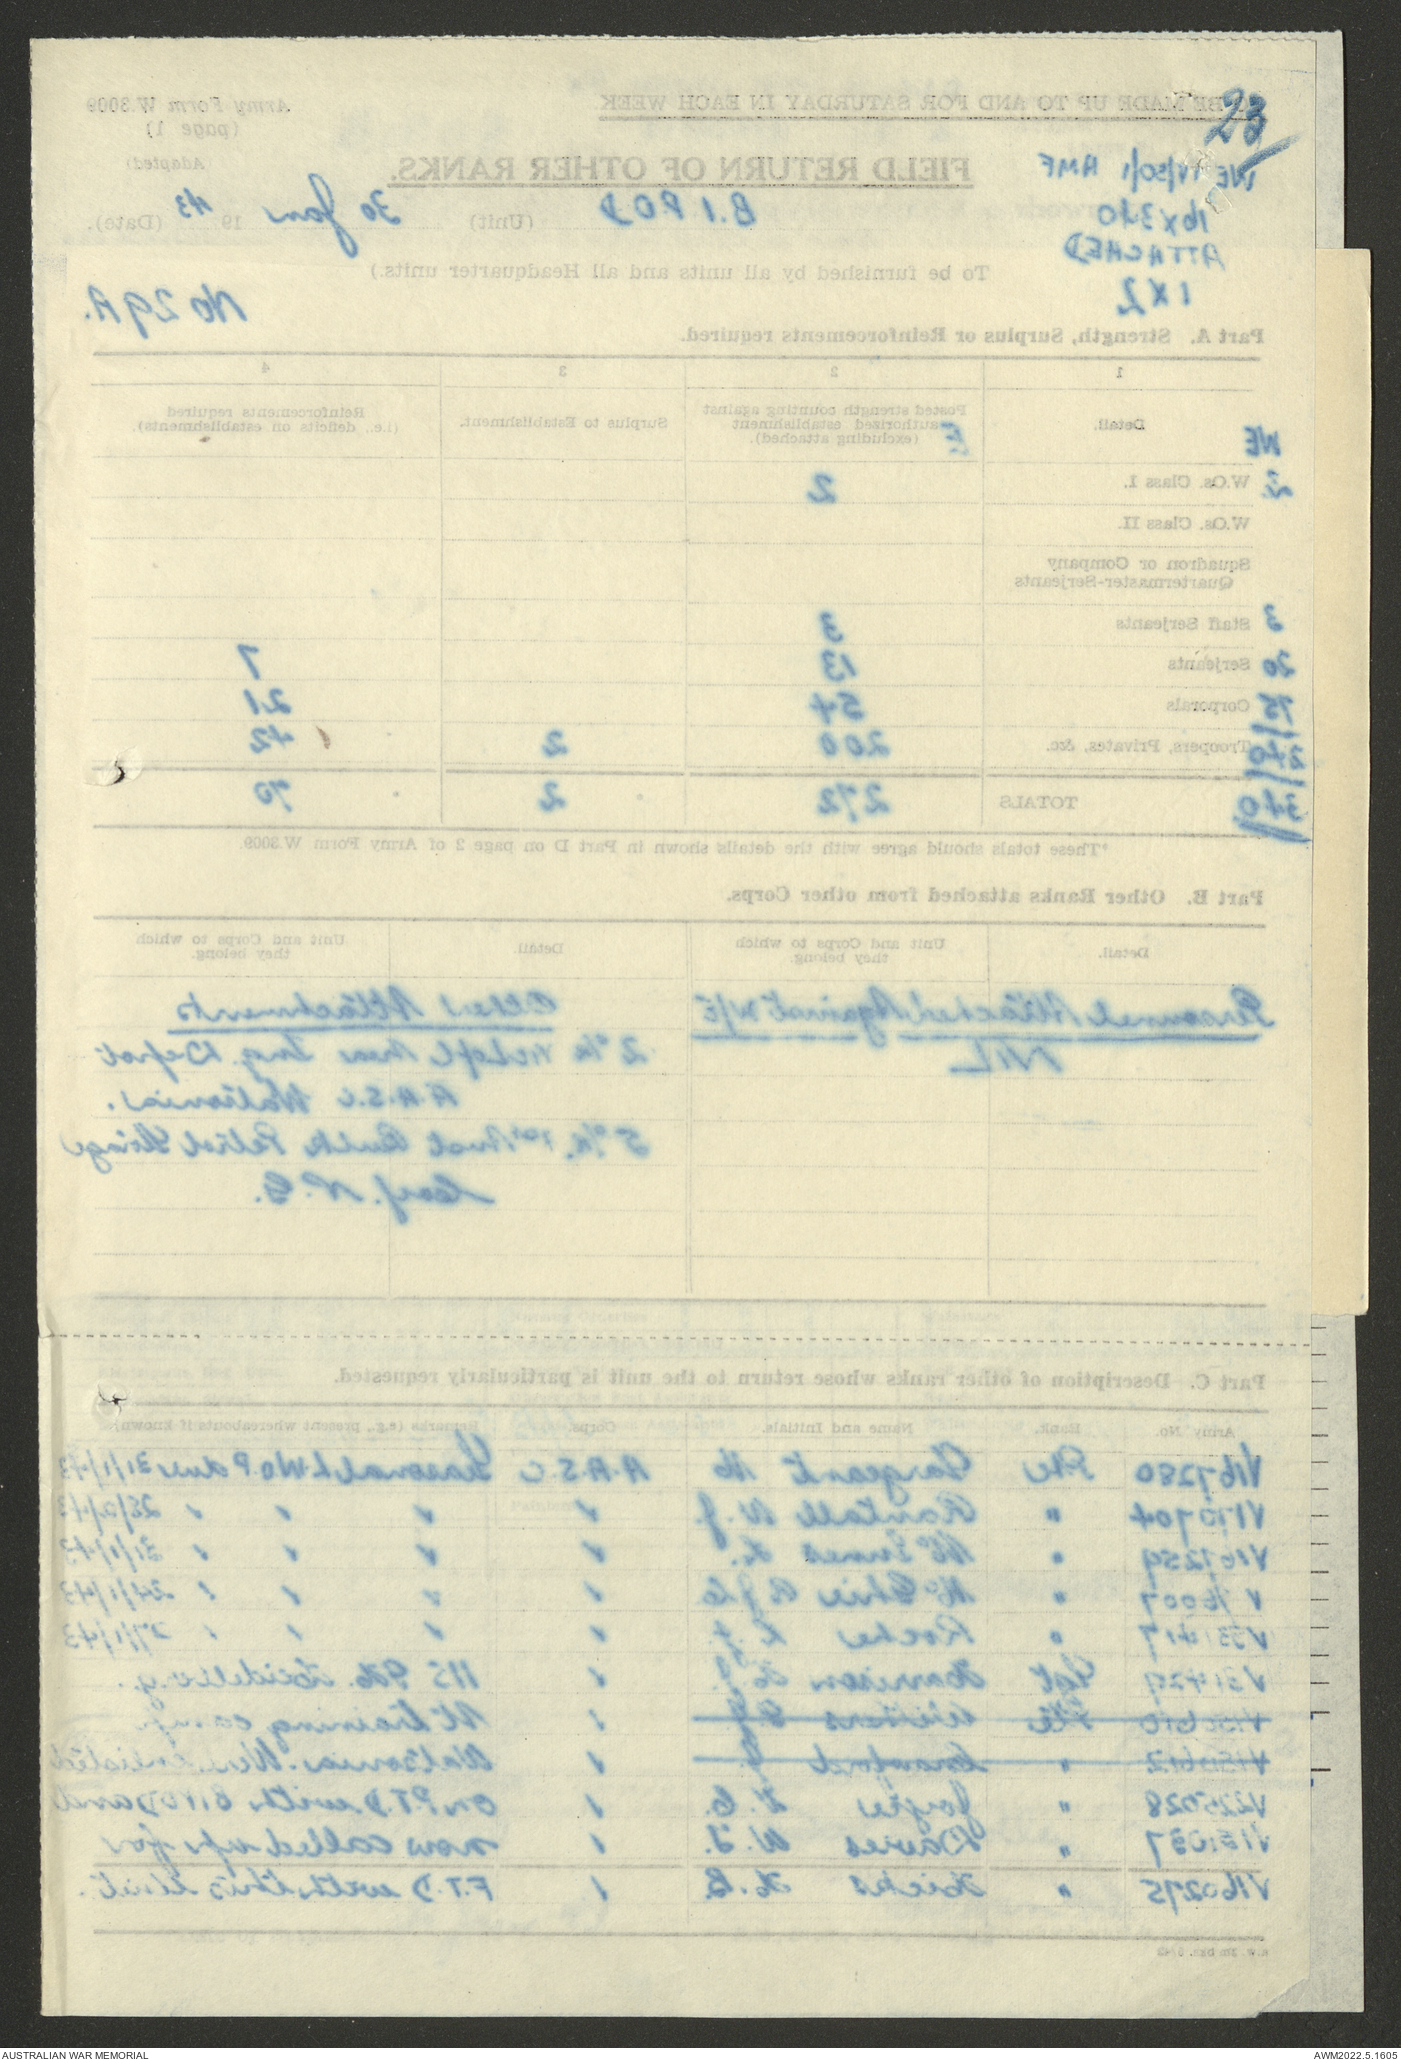 23
TO BE MADE UP TO AND FOR SATURDAY IN EACH WEEK
Army Form W.3009
(page 1)
(Adapted)
FIELD RETURN OF OTHER RANKS.
WE IV/50/1 AMF
16 x 340
ATTACHED
1 x 2
B.I.P.O.D (Unit) 30 Jan 1943 (Date).
To be furnished by all units and all Headquarter units.)
No 29A.
Part A. Strength, Surplus or Reinforcements required.
1 2 3 4
WE Detail. Posted strength counting against authorized establishment (excluding attached). Surplus to Establishment. Reinforcements required (i.e., deficits on establishments).
2 W.Os. Class I. 2
W.Os. Class II.
Squadron or Company Quartermaster-Serjeants
3 Staff Serjeants 3
20 Serjeants 13 7
75 Corporals 54 21
240 Troopers, Privates, &c. 200 2 42
340 TOTALS 272 2 70
*These totals should agree with the details shown in Part D on page 2 of Army Form W.3009.
Part B. Other Ranks attached from other Corps.
Detail. Unit and Corps to which they belong. Detail. Unit and Corps to which they belong.
Personnel Attached Against W/E
NIL
Other Attachments
2 O/R Vic L of C Area Trng. Depot
A.A.S.C. Watsonia.
5 O/R. 1st Aust Bulk Petrol Storage
Coy. N.G.
Part C. Description of other ranks whose return to the unit is particularly requested.
Army No. Rank. Name and Initials. Corps. Remarks (e.g., present whereabouts if known)
V167280 Pte Sargeant A.A.S.C Seasonal LWOP due 31/1/43
V170704 " Rantall W.J. " " " " 28/2/43
V167259 " McInnes " " " " 31/1/43
V16007 " McGhie " " " " 24/1/43
" Roche " " " " 27/1/43
Sgt Harrison " 115 GH. Heidelberg.
Pte Withers " At training camp
" Crawford " Watsonia. Were enlisted
V225028 " Joyce " on P.T.D with BIPOD and
" Davies W.J. " now called up for
V160275 " Hicks H.B. " F.T.D with this Unit.
AUSTRALIAN WAR MEMORIAL
AWM2022.5.1605